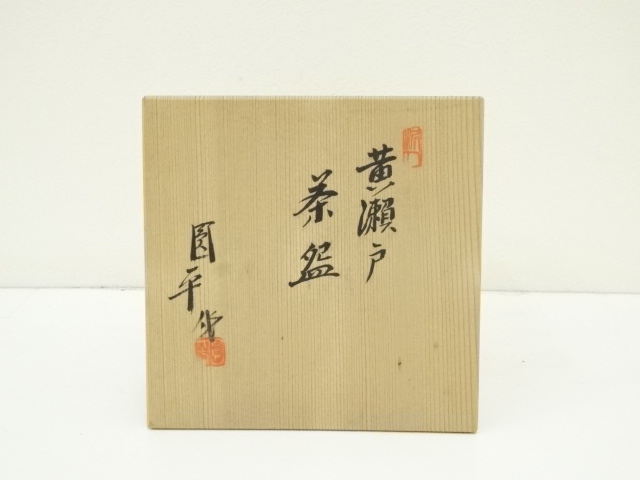 黄瀬戸
茶盌
圓平作